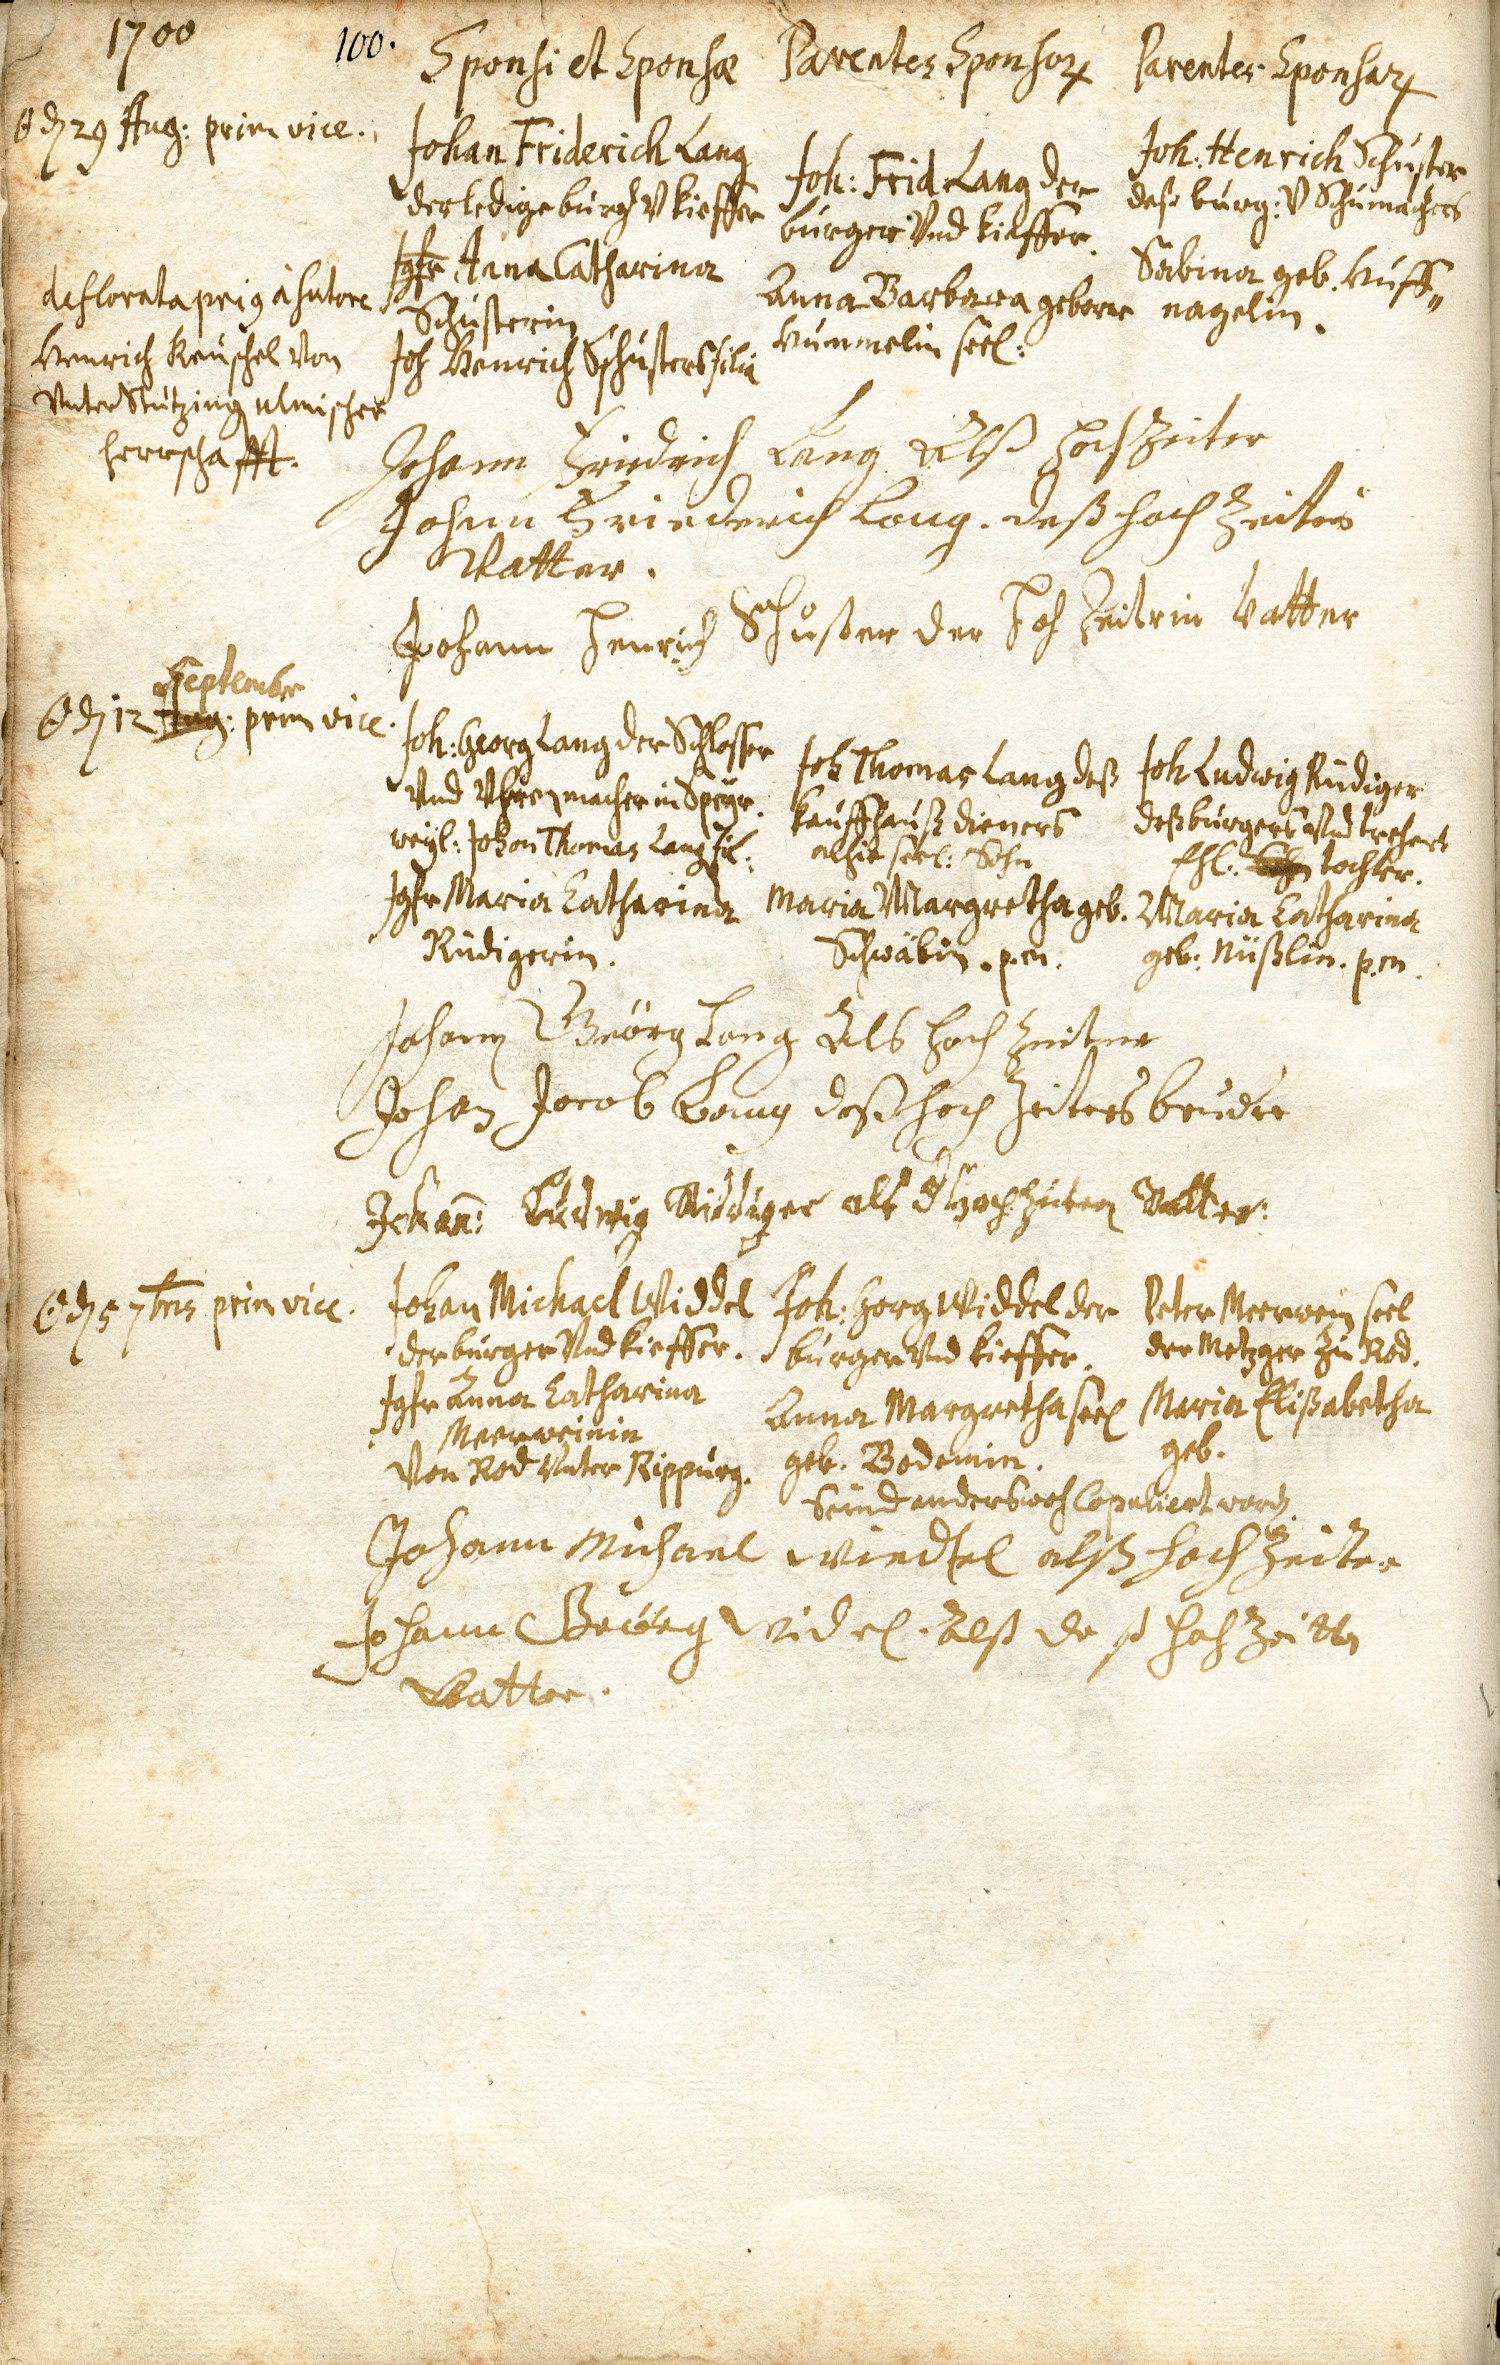 1700
100.
Sponsi et Sponsæ
Parentes Sponsor
Parentes Sponsar
29 Aug: prim vice.
Johan Friderich Lang
der ledige burg V kieffer
Jgfr Anna Catharina
Schusterin
Joh Henrich Schusters filia
Joh: Frid. Lang der
burger Vnd kieffer.
Anna Barbara geborne
Hummelin seel:
Joh: Henrich Schuster
deß burg: V Schumachers
Sabina geb. Huff„
nagelin.
deflorata prig à sutore
Henrich Keuschel Von
Vnter Stutzing ulmischer
herrschafft.
Johann Friedrich Lang Alß hochZeiter
Johann Friederich Lang. deß hoch Zeiters
Vatter.
Johann Henrich Schuster der Hoch Zeitrin Vatter
September
12 Aug: prim vice.
Joh: Georg Lang der Schlosser
Vnd Vhrenmacher in Speyr.
weyl: Johan Thomas Lang fil:
Jgfr Maria Catharina
Rüdigerin.
Joh Thomas Lang deß
Kauffhauß dieners
alhie seel: Sohn
Maria Margretha geb.
Schwäbin. p.m.
Joh Ludwig Rüdiger
deß burgers Vnd trehers
Ehl. tochter.
Maria Catharina
geb: Nüßlin. p.m.
Johann Geörg Lang Als hoch Zeiter
Johan Jacob Lang deß hoch Zeiters bruder
Johan: Ludwig Rüdiger als d Hochzeiterin Vatter:
5 7bris prim vice.
Johan Michael Widdel
der burger Vnd kieffer.
Jgfr Anna Catharina
Meerweinin
Von Rod Vnter Rippurg.
Joh: Gorg Widdel der
burger Vnd kieffer.
Anna Margretha seel
geb. Bodemin.
Peter Meerwein seel
der Metzger zu Rod.
Maria Elisabetha
geb.
Seind anderswoh Copuliert word.
Johann Michael Wiedel alß hoch Zeiter
Johann Geörg Widel. Alß deß hoch Zeiters
Vatter.